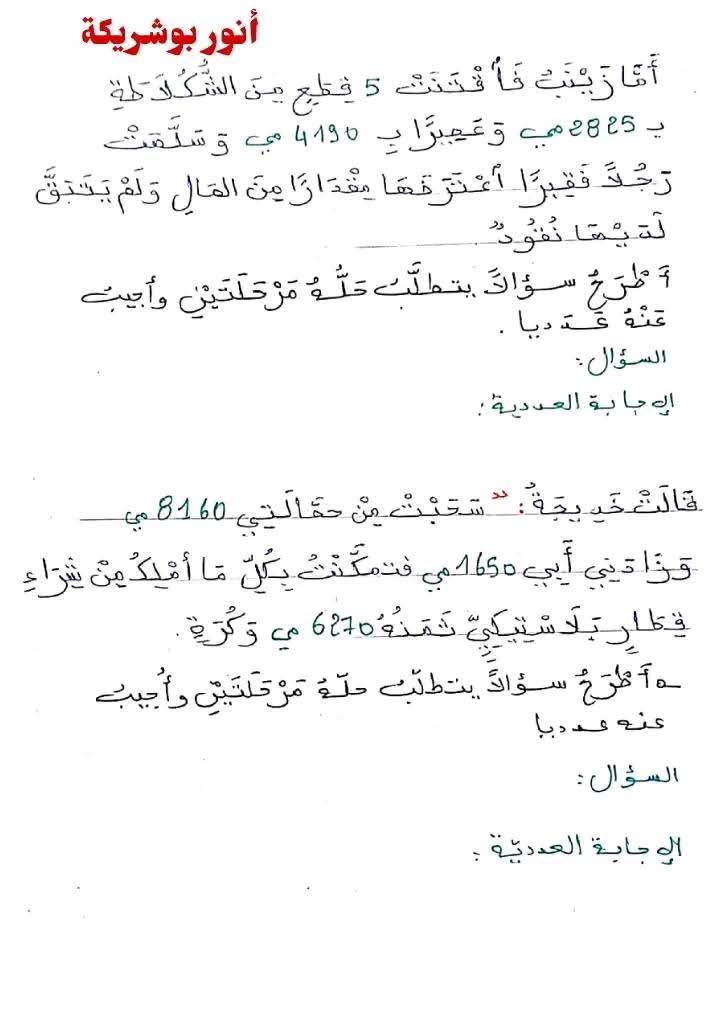 أنور بوشريكة
أَمَّا زَيْنَبُ فَٱقْتَنَتْ 5 قِطَعٍ مِنَ الشُّكُلَاطَةِ
بـ 2825 مي وَعَصِيرًا بِـ 4190 مي وَسَلَّمَتْ
رَجُلاً فَقِيرًا ٱعْتَرَضَهَا مِقْدَارًا مِنَ المَالِ وَلَمْ يَتَبَقَّ
لَدَيْهَا نُقُودٌ
أَطْرَحُ سؤالاً يتطلَّبُ حَلُّهُ مَرْحَلَتَيْنِ وأجيبُ
عَنْهُ عَدديا .
السؤال:
الإجابة العددية:
قَالَتْ خَدِيجَةُ: " سَحَبْتُ مِنْ حصَّالَتِي 8160 مي
وَزَادَنِي أَبِي 1650 مي فتمكَّنْتُ بِكُلِّ مَا أمْلِكُ مِنْ شِرَاءِ
قِطَارٍ بَلَاسْتِيكِيٍّ ثَمَنُهُ 6270 مي وَكُرَةٍ .
أَطْرَحُ سؤالاً يتطلّبُ حلّهُ مَرْحَلَتَيْنِ وأُجيبُ
عنه عدديا
السؤال:
الإجابة العدديّة :